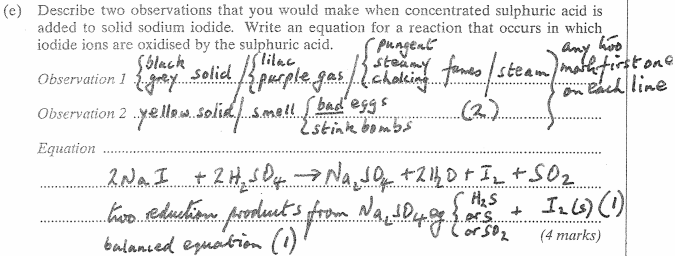 (e) Describe two observations that you would make when concentrated sulphuric acid is
added to solid sodium iodide. Write an equation for a reaction that occurs in which
iodide ions are oxidised by the sulphuric acid.
Observation 1 {black / grey solid / {lilac / purple gas / {pungent / steamy / choking fumes / steam } any two mark first one on each line
Observation 2 yellow solid / smell {bad eggs / stink bombs (2)
Equation
2NaI + 2H₂SO₄ → Na₂SO₄ + 2H₂O + I₂ + SO₂
two reduction products from Na₂SO₄ eg { H₂S / or S / or SO₂ + I₂(s) (1)
balanced equation (1)
(4 marks)